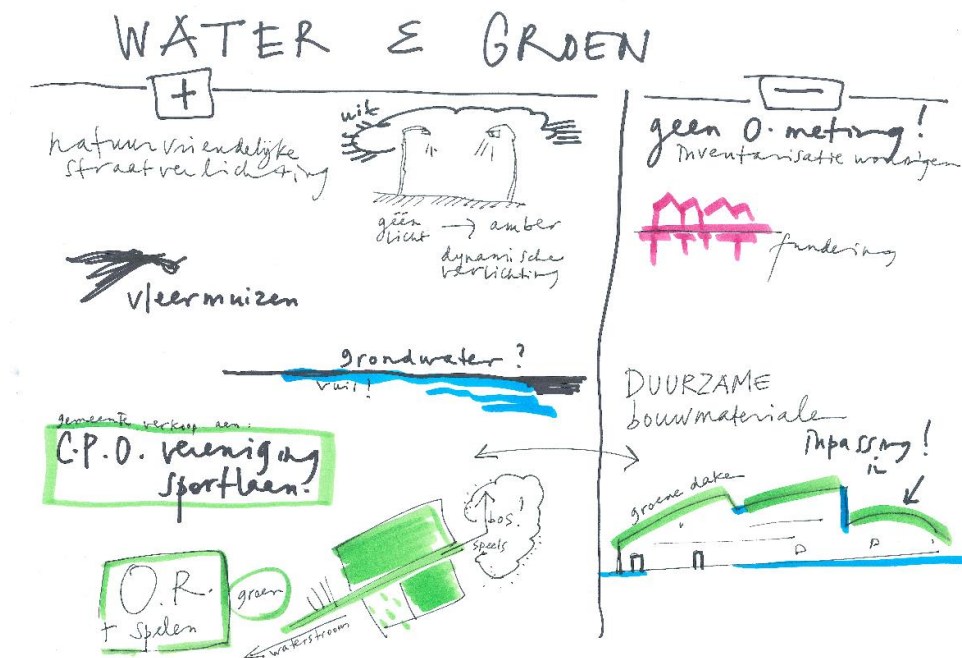 WATER & GROEN
+
natuurvriendelijke
straatverlichting
uit
géén
licht
→ amber
dynamische
verlichting
vleermuizen
grondwater?
vuil!
gemeente verkoop aan:
C.P.O. vereniging
sportlaan.
O.R.
+ spelen
groen
waterstroom
bos!
speels
−
geen 0.meting!
inventarisatie woningen
fundering
DUURZAME
bouwmaterialen
inpassing!
groene daken